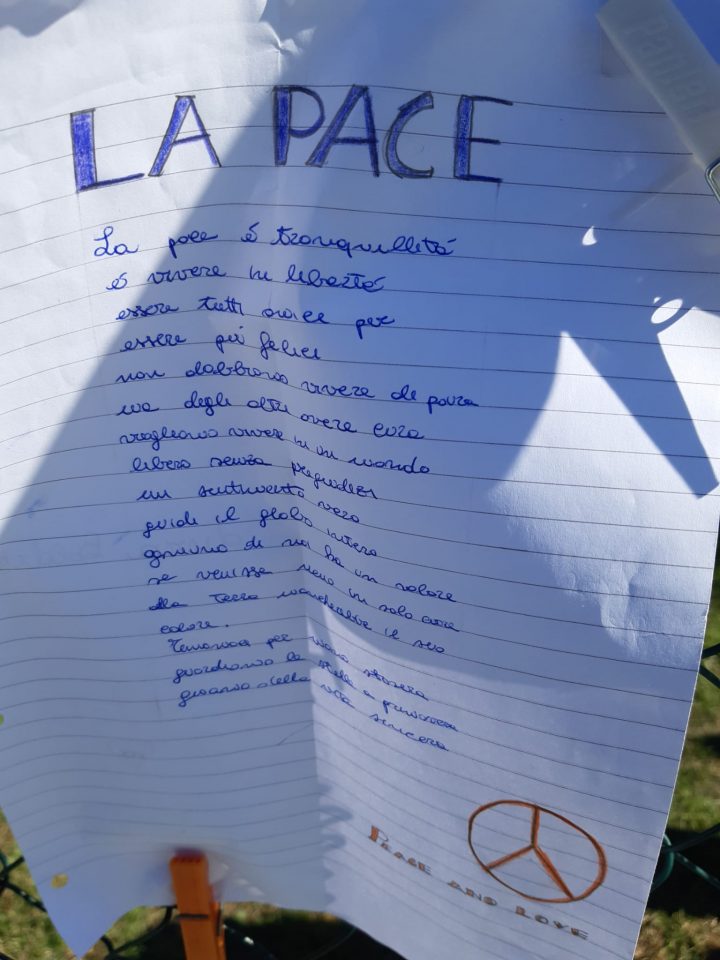 LA PACE
La pace é tranquillitá
é vivere in libertá
essere tutti amici per
essere piú felici
non dabbiamo vivere di paura
ma degli altri avere cura
vogliamo vivere in un mondo
libero senza pregiudizi
un sentimento vero
guidi il globo intero
ognuno di noi ha un valore
se venisse meno un solo cuore
alla Terra mancherebbe il suo
colore.
Teniamoci per mano stasera
guardiamo le stelle e
vita sincera
PEACE AND LOVE